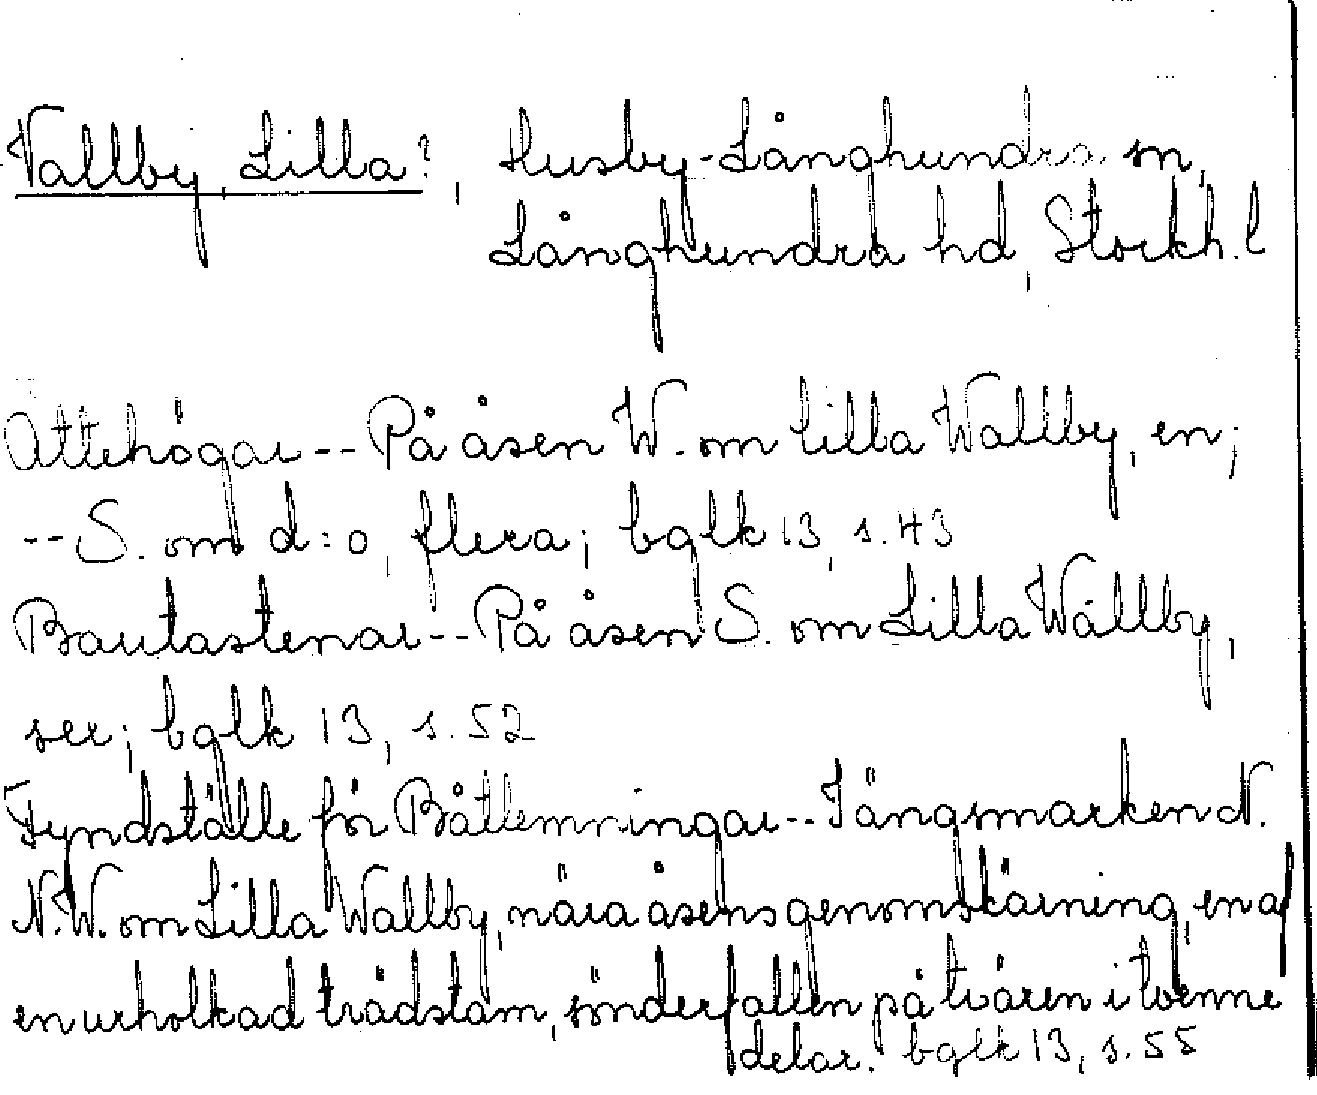 Vallby, Lilla?, Husby-Långhundra sn,
Långhundra hd, Stockh. l
Ättehögar -- På åsen W. om Lilla Wallby, en;
-- S. om d:o, flera; bglk 13, s. 43
Bautastenar -- På åsen S. om Lilla Wallby,
sex; bglk 13, s. 52
Fyndställe för Båtlemningar -- I ängsmarken N.
N.W. om Lilla Wallby, nära åsens genomskärning, en af
en urholkad trädstam, sönderfallen på tvären i tvenne
delar. bglk 13, s. 55